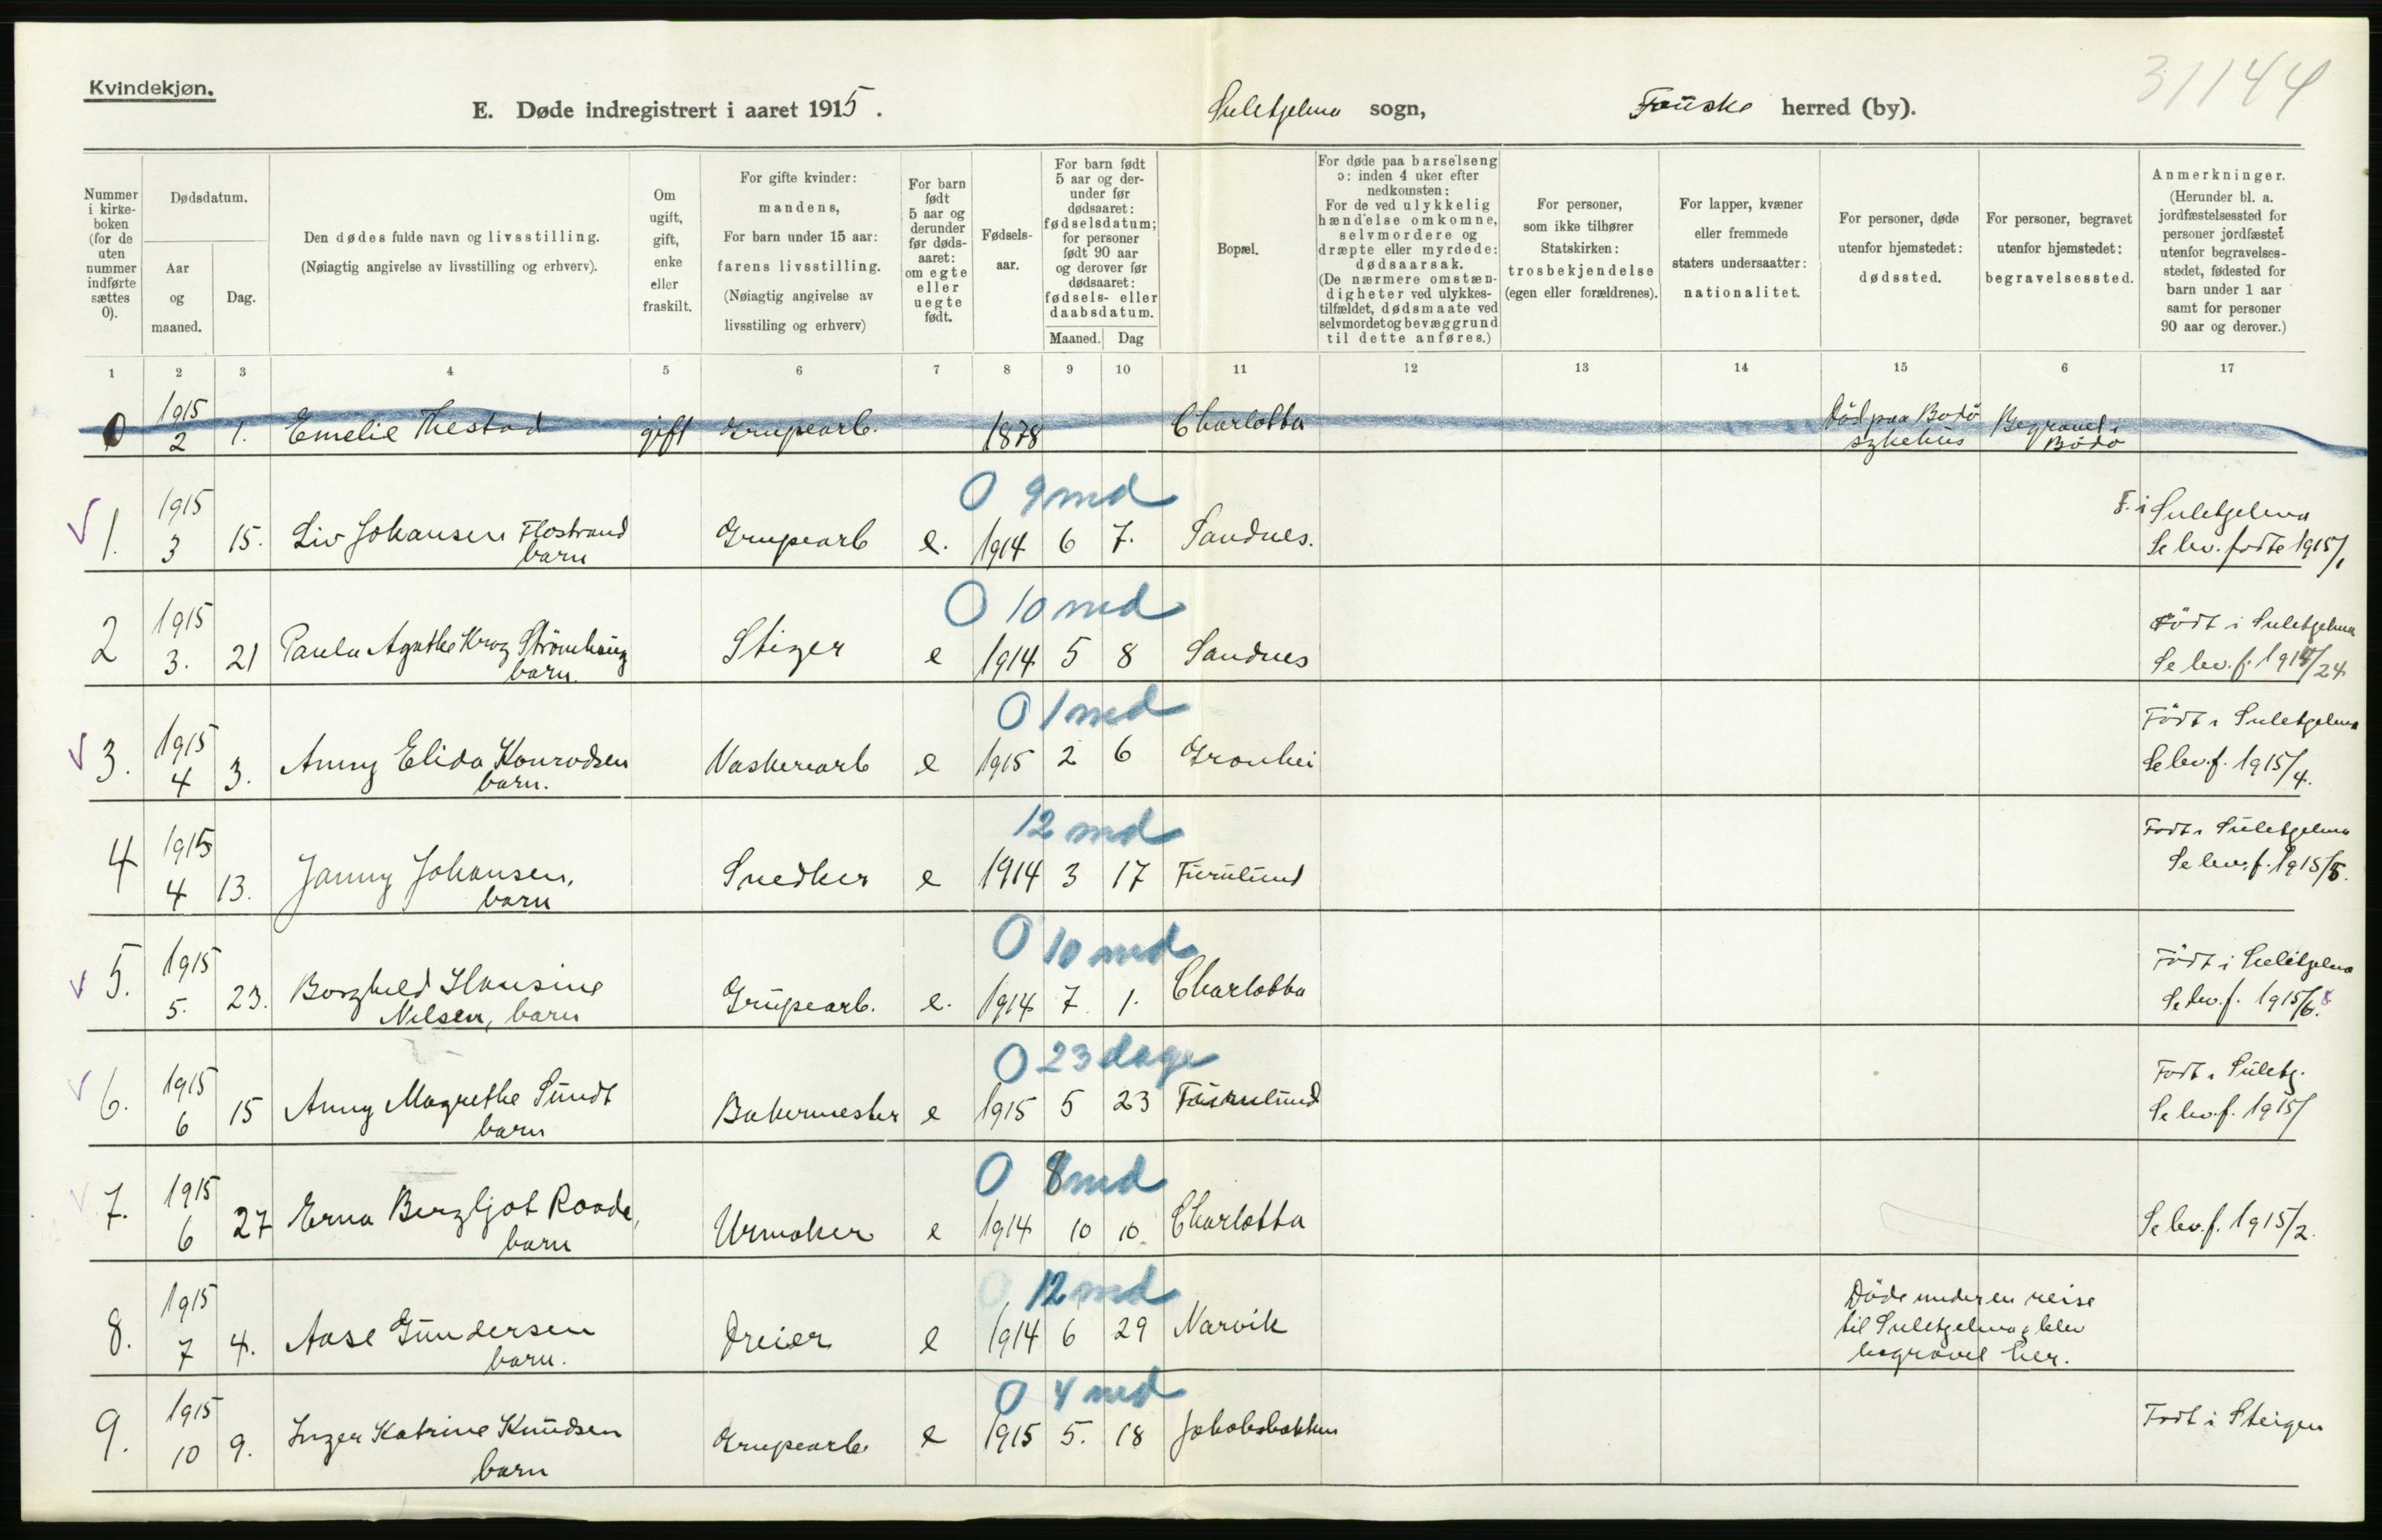 Kvindekjøn.
31144
E. Døde indregistrert i aaret 1915. Sulitjelma sogn, Fauske herred (by).
Nummer i kirke-boken (for de uten nummer indførte sættes 0).
Dødsdatum.
Aar og maaned.
Dag.
Den dødes fulde navn og livsstilling.
(Nøiagtig angivelse av livsstilling og erhverv).
Om ugift, gift, enke eller fraskilt.
For gifte kvinder: mandens,
For barn under 15 aar: farens livsstilling.
(Nøiagtig angivelse av livsstiling og erhverv)
For barn født 5 aar og derunder før døds-aaret: om egte eller uegte født.
Fødsels-aar.
For barn født 5 aar og der-under før dødsaaret: fødselsdatum; for personer født 90 aar og derover før dødsaaret: fødsels- eller daabsdatum.
Maaned. Dag
Bopæl.
For døde paa barselseng ɔ: inden 4 uker efter nedkomsten:
For de ved ulykkelig hændelse omkomne, selvmordere og dræpte eller myrdede: dødsaarsak.
(De nærmere omstæn-digheter ved ulykkes-tilfældet, dødsmaate ved selvmordet og bevæggrund til dette anføres.)
For personer, som ikke tilhører Statskirken: trosbekjendelse (egen eller forældrenes).
For lapper, kvæner eller fremmede staters undersaatter: nationalitet.
For personer, døde utenfor hjemstedet: dødssted.
For personer, begravet utenfor hjemstedet: begravelsessted.
Anmerkninger.
(Herunder bl. a. jordfæstelsessted for personer jordfæstet utenfor begravelses-stedet, fødested for barn under 1 aar samt for personer 90 aar og derover.)
1 2 3 4 5 6 7 8 9 10 11 12 13 14 15 6 17
0 1915 2 1. Emelie Thestad gift Grupearb. 1878 Charlotta Död paa Bodö sykehus Begravet i Bodö
0 9 md
1. 1915 3 15. Liv Johansen Flostrand barn Grupearb e. 1914 6 7. Sandnes. F. i Sulitjelma Se lev. födte 1915/1
0 10 md
2 1915 3. 21 Paula Agathe Krog Strömhaug barn. Stiger e 1914 5 8 Sandnes Födt i Sulitjelma Se lev. f. 1914/24
0 1 md
3. 1915 4 3. Anny Elida Konradsen barn. Vaskerarb e 1915 2 6 Grønli Födt i Sulitjelma Se lev. f. 1915/4.
12 md
4 1915 4 13. Janny Johansen, barn Snedker e 1914 3 17 Furulund Födt i Sulitjelma Se lev. f. 1915/5.
0 10 md
5. 1915 5. 23. Borghild Hansine Nilsen, barn Grupearb. e. 1914 7. 1. Charlotta Födt i Sulitjelma Se lev. f. 1915/6.
0 23 dage
6. 1915 6 15 Anny Magrethe Sundt barn Bakermester e 1915 5 23 Furulund Födt i Sulitj. Se lev. f. 1915/
0 8 md
7. 1915 6 27 Erna Bergljot Roode, barn Urmaker e 1914 10 10. Charlotta Se lev. f. 1915/2.
0 12 md
8. 1915 7 4. Aase Gundersen barn. Dreier e 1914 6 29 Narvik Döde under en reise til Sulitjelma & blev begravet her.
0 4 md
9. 1915 10 9. Inger Katrine Knudsen barn Grupearb. e 1915 5. 18 Jakobsbakken Födt i Steigen